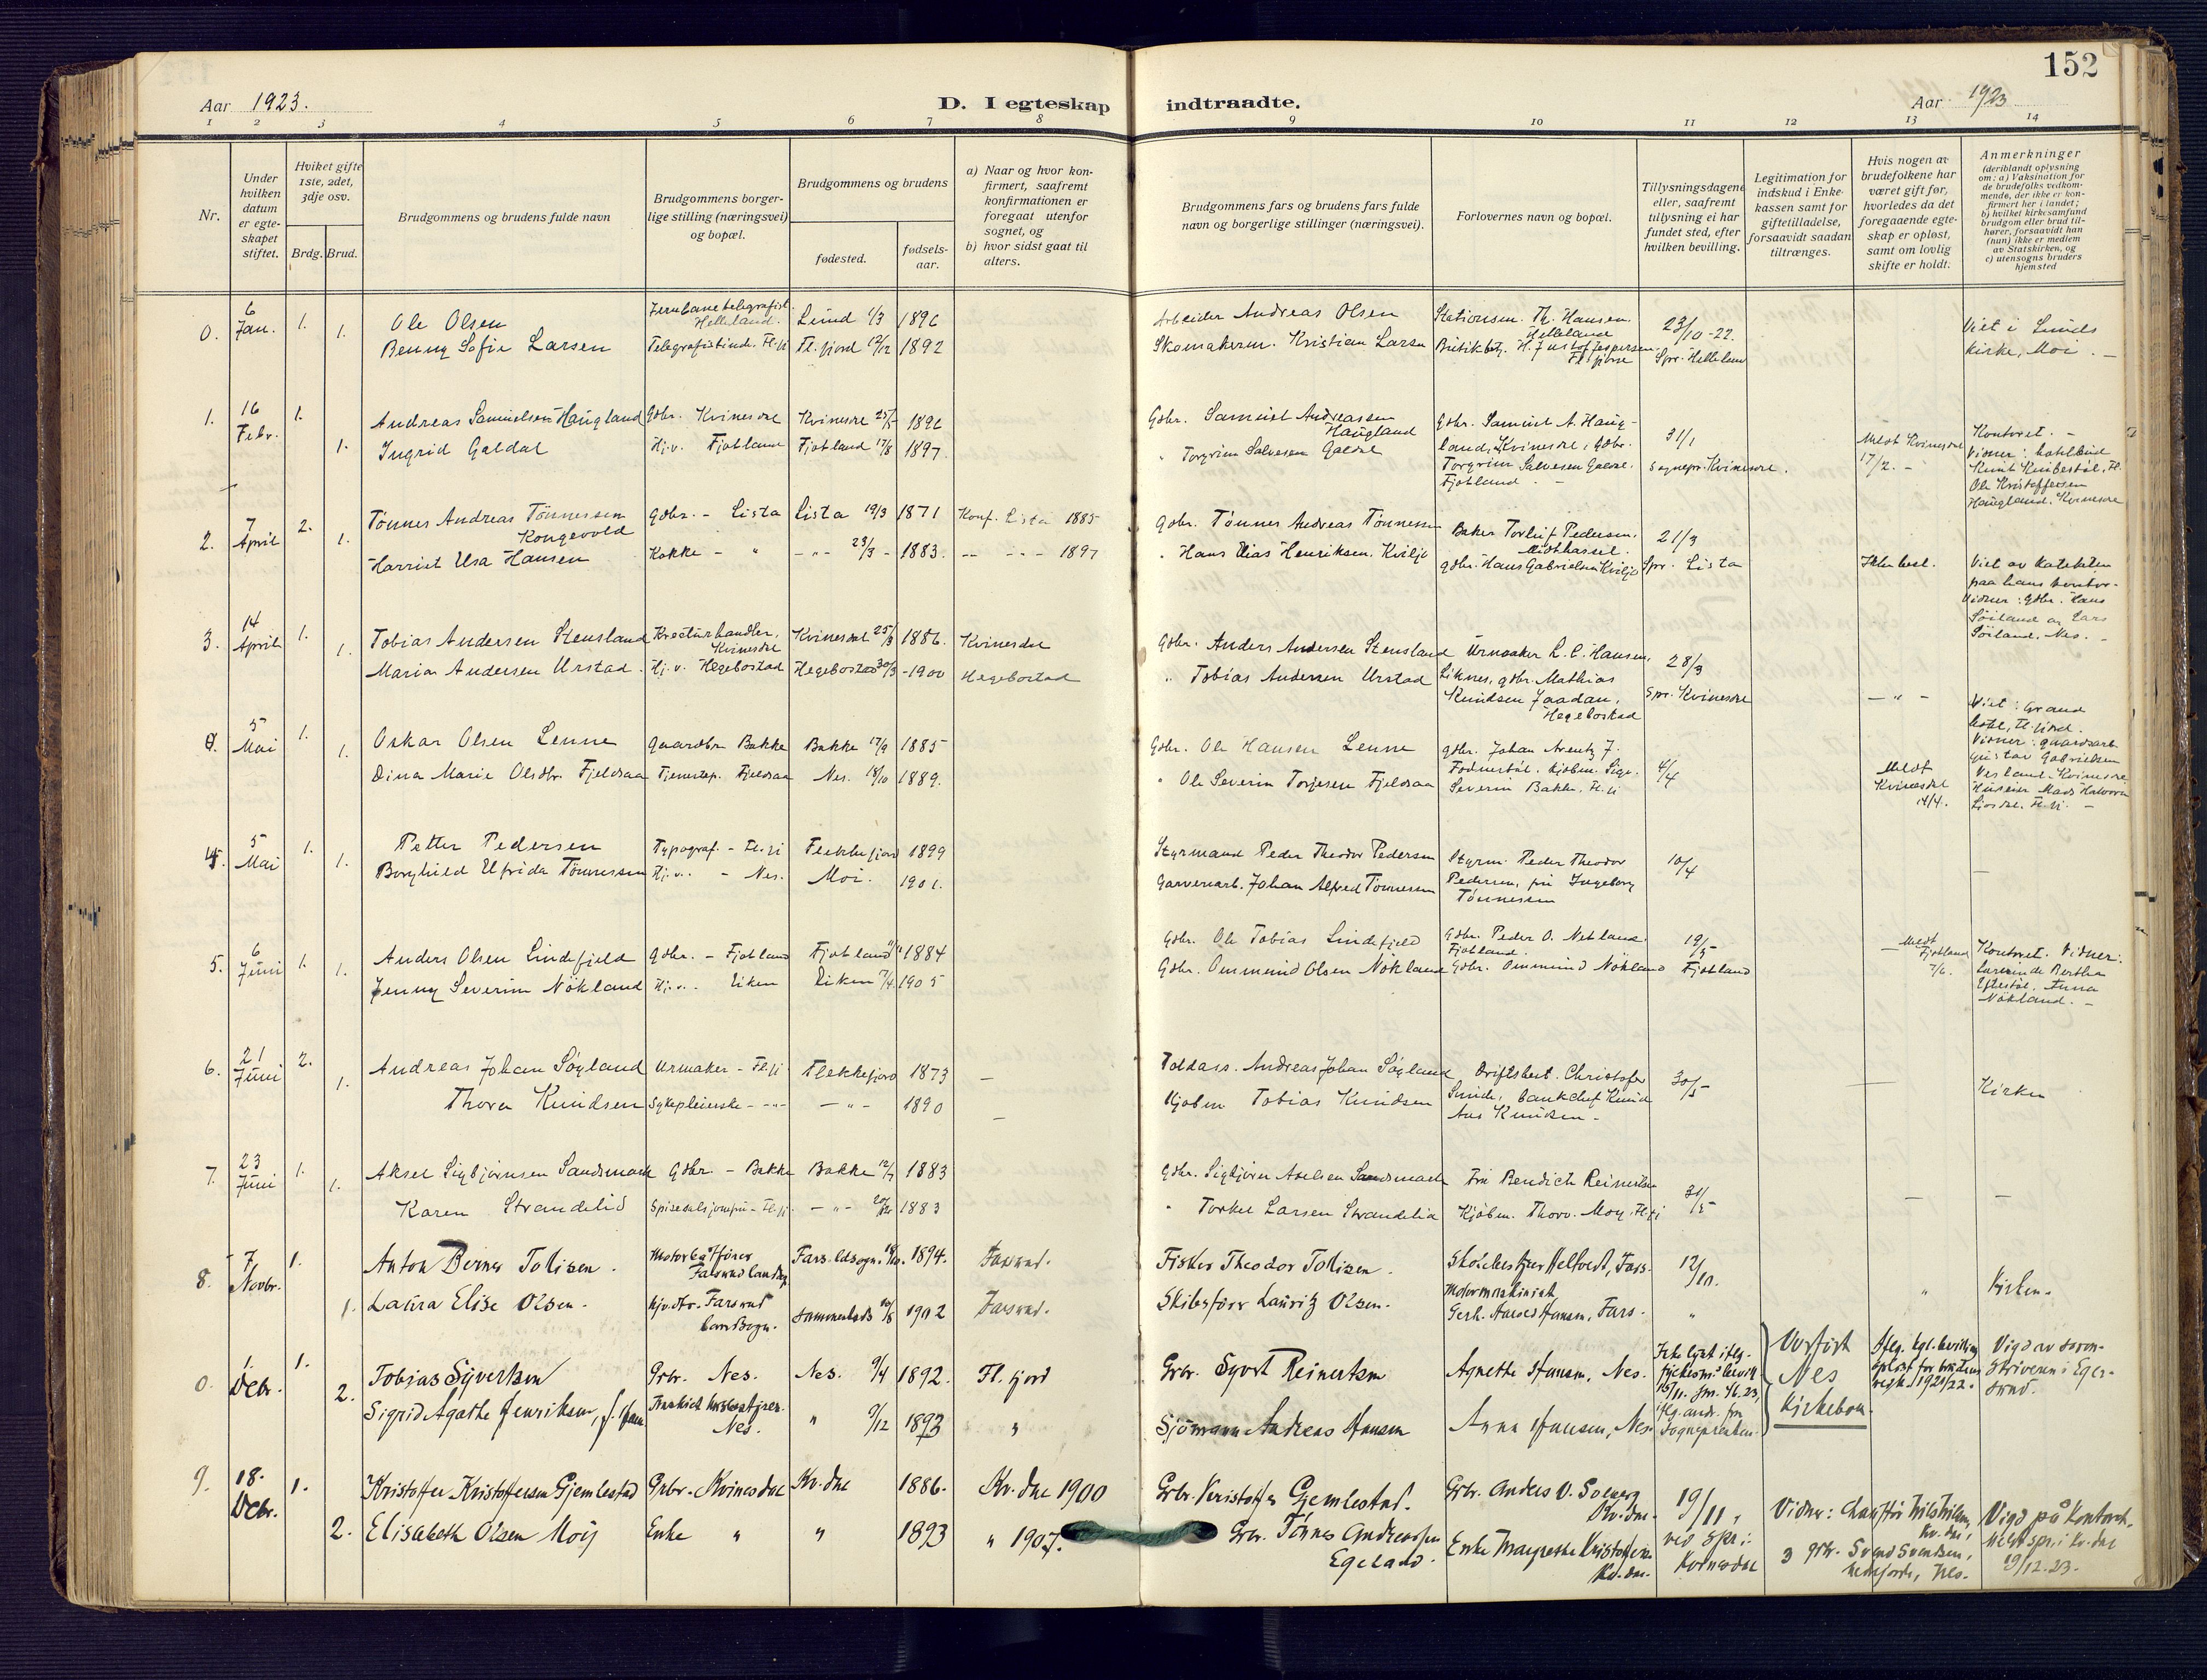 152
Aar 1923.
D. I egteskap indtraadte.
Aar 1923
1 2 3 4 5 6 7 8 9 10 11 12 13 14
Nr.
Under hvilken datum er egte-skapet stiftet.
Hvilket gifte 1ste, 2det, 3dje osv.
Brdg. Brud.
Brudgommens og brudens fulde navn
Brudgommens borger-lige stilling (næringsvei) og bopæl.
Brudgommens og brudens
fødested.
fødsels-aar.
a) Naar og hvor kon-firmert, saafremt konfirmationen er foregaat utenfor sognet, og
b) hvor sidst gaat til alters.
Brudgommens fars og brudens fars fulde navn og borgerlige stillinger (næringsvei).
Forlovernes navn og bopæl.
Tillysningsdagene eller, saafremt tillysning ei har fundet sted, efter hvilken bevilling.
Legitimation for indskud i Enke-kassen samt for giftetilladelse, forsaavidt saadan tiltrænges.
Hvis nogen av brudefolkene har været gift før, hvorledes da det foregaaende egte-skap er opløst, samt om lovlig skifte er holdt.
Anmerkninger
(deriblandt oplysning om: a) Vaksination for de brudefolks vedkom-mende, der ikke er kon-firmert her i landet; b) hvilket kirkesamfund brudgom eller brud til-hører, forsaavidt han (hun) ikke er medlem av Statskirken, og c) utensogns bruders hjemsted
0. 6 Jan. 1. Ole Olsen Jernbanetelegrafist Helleland. Lund 1/3 1896 Arbeider Andreas Olsen Stationsm. Th. Hansen. Helleland 23/10-22. Viet i Lunds
1. Benny Sofie Larsen Telegrafistinde. Fl.fj Fl.fjord 12/12 1892 Skomakerm. Kristian Larsen Fl.fjord Spr. Helleland kirke, Moi. -
1. 16 Febr. 1. Andreas Samuelsen Haugland Gbr. Kvinesdal Kvinesdal 1896 Gbr. Samuel Andreassen Haugland gbr. Samuel A. Haug-land, Kvinesdal, Gbr. 31/1 Meldt Kvinesdal 17/2. - Kontoret. -
1. Ingrid Galdal Hj.v. Fjotland Fjotland 17/8 1897. " Torgrim Salvesen Galdal Torgrim Salvesen Galdal. Fjotland. - Sognepr. Kvinesdal. Vidner:
Ole Kristoffersen Haugland. Kvinesdal
2. 7 April 2. Tønnes Andreas Tønnessen Kongevold gbr. - Lista Lista 19/3 1871 Konf. Lista 1885 Gbr. Tønnes Andreas Tønnessen Baker Torleif Pedersen. Midthassel. 21/3
1. Harriet Elsa Hansen Kokke - " -"- 23/3 - 1883. -- -- - 1897 " Hans Elias Henriksen. Kviljo gbr. Hans Gabrielsen Kviljo Spr. Lista Viet av kateketen paa hans kontor. Vidner: Gbr. Hans Søiland og Lars Søiland. Nes. -
3. 14 April 1. Tobias Andersen Stensland Kreaturhandler, Kvinesdal Kvinesdal 25/3 1886. Kvinesdal Gbr. Anders Andersen Stensland Urmaker L. C. Hansen, 28/3
1. Maria Andersen Urstad. Hj.v. Hegebostad Hegebostad 30/3 - 1900 Hegebostad " Tobias Andersen Urstad Liknes, gbr. Mathias Knudsen Jaadan, Hegebostad Spr. Kvinesdal - " - Viet: Grand hotel, Fl.fjord.
4. 5 Mai 1. Oskar Olsen Lenne gaardbr. Bakke Bakke 17/9 1885 Gbr. Ole Hansen Lenne gbr. Johan Arentz J. 4/4 Vidner: gaardsarb. Gustav Gabrielsen
1. Dina Marie Olsdtr. Fjeldsaa Tjenestep. Fjeldsaa Nes. 18/10 1889. " Ole Severin Torjesen Fjeldsaa Severin Bakke, Fl.fj Meldt Kvinesdal 14/4. Kvinesdal. Huseier Mads Halvorsen Fl.fj. -
4. 5 Mai 1. Petter Pedersen Typograf. - Fl.fj Flekkefjord 1899 Styrmand Peder Theodor Pedersen Styrm. Peder Theodor 10/4
1. Borghild Elfrida Tønnessen Hj.v. - Nes. Moi. 1901. Garveriarb. Johan Alfred Tønnessen Pedersen, fru Ingeborg Tønnessen -
5. 6 Juni 1. Anders Olsen Lindefjeld gbr. - Fjotland Fjotland 1884 Gbr. Ole Tobias Lindefjeld Gbr. Peder O. Netland. Fjotland. 19/5 Meldt Fjotland 7/6. Kontoret. Vidner:
1. Jenny Severine Nökland Hj.v. Eiken Eiken 7/4 1905 Gbr. Ommund Olsen Nökland Gbr. Ommund Nökland Fjotland Lærerinde Bertha Eftestøl. Anna Nökland. -
6. 21 Juni 2. Andreas Johan Søyland Urmaker - Fl.fj. Flekkefjord 1873 - Toldass. Andreas Johan Søyland Driftsbest. Christofer 30/5 - Kirken
1. Thora Knudsen Sykepleierske - -"- -"- 1890 - Kjøbm. Tobias Knudsen Lunde, bankchef Knud Aas Knudsen -
7. 23 Juni 1. Aksel Sigbjørnsen Sandsmark Gbr. - Bakke Bakke 12/7 1883 Gbr. Sigbjørn Axelsen Sandsmark Fru Bendich Reinertsen 31/5 - -
1. Karen Strandelid - Fl.fj. -"- 1883 " Torkel Larsen Strandelid Kjøbm. Thorv. Moy. Fl.fj
8. 7 Novbr. 1. Anton Berner Tollisen. Motorbåtfører Farsund landsogn Fars. ldsogn. 1894. Farsund. Fisker Theodor Tollisen. Fars. 12/10. " Kirken.
1. Laura Elise Olsen. Farsund landsogn. sammesteds 10/8 1902 Farsund. Skibsfører Lauritz Olsen. Motormaskinist Hansen, Fars. "
0. 1 Debr. 1. Tobias Syvertsen Grbr. Nes. Nes. 9/4 1892. Fl. fjord Grbr. Syvert Reinertsen Agnethe Hansen, Nes. Ikke lyst iflg. Overført Nes Kirkebok. Vigd av soren-skriveren i Eger-sund.
2. Sigrid Agathe Henriksen, f. Hansen Nes. " 9/12 1893 " Sjømann Andreas Hansen Anna Hansen, Nes. Sognepresten.
9. 18. Debr. 1. Kristoffer Kristoffersen Gjemlestad Grbr. Kvinesdal Kv.dal 1886. Kv.dal 1900 Grbr. Kristoffer Gjemlestad. Grbr. Anders O. Solberg Kv.dal. 19/11, Vidner: Chauffør Nils Nilsen, Kv.dal, Vigd på Kontoret.
2. Elisabeth Olsen Moy Enke " " 1893 " 1907. Grbr. Tønnes Andreassen Egeland. Enke Margrethe Kristoffersen Kv.dal. ved Spr. i Kvinesdal 3 grbr. Svend Svendsen, Nes. Meldt spr. i Kv.dal 19/12.23.